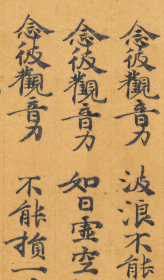 念彼觀音力　波浪不能
念彼觀音力　如日虛空
念彼觀音力　不能損一